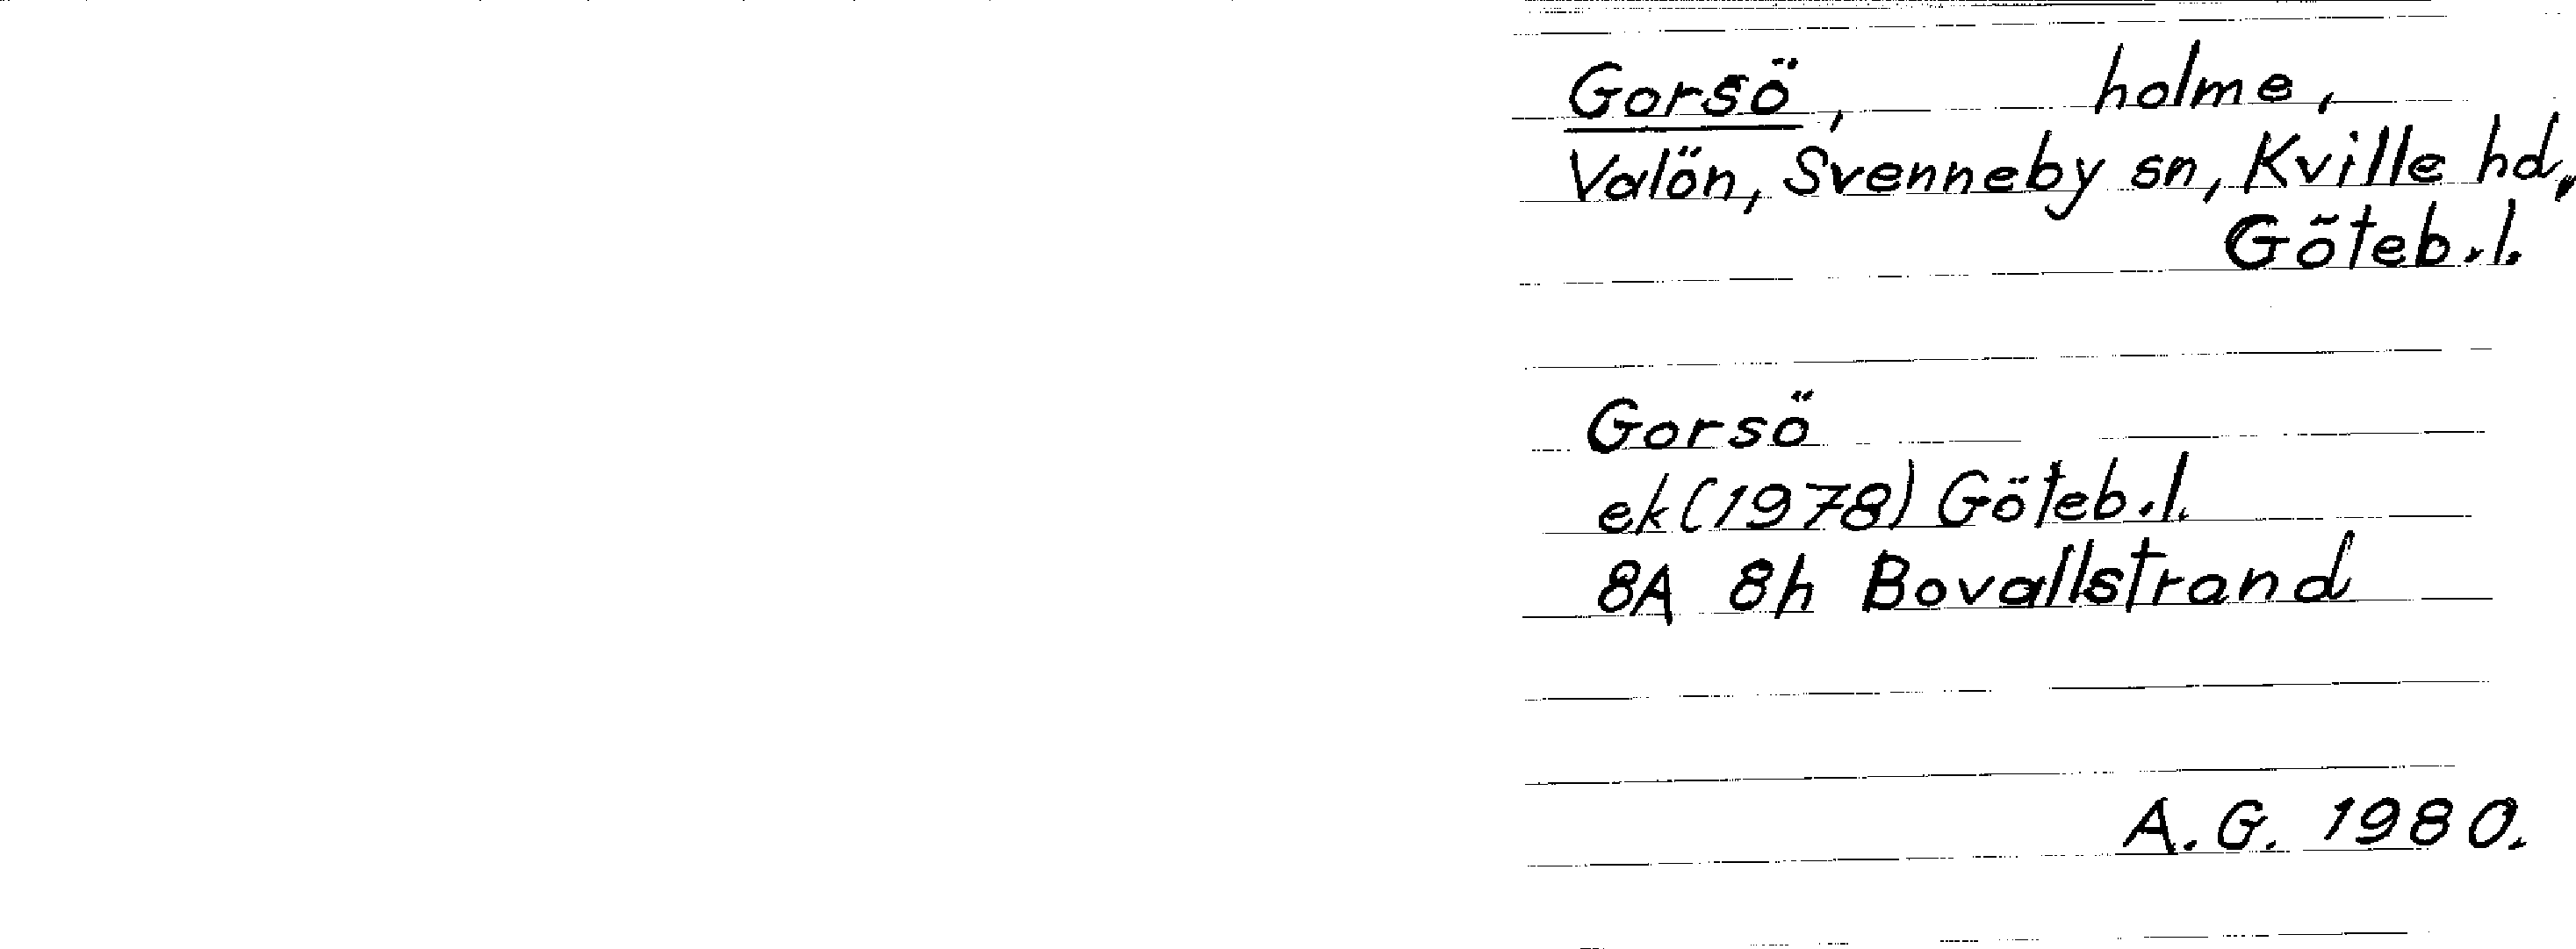 Gorsö, holme,
Valön, Svenneby sn, Kville hd,
Göteb.l.
Gorsö
ek (1978) Göteb.l.
8A 8h Bovallstrand
A.G. 1980.